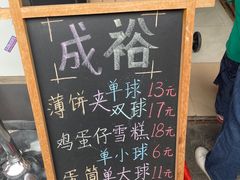 成裕
单球 13元
薄饼夹 双球 17元
鸡蛋仔雪糕 18元
单小球 6元
蛋筒 单大球 11元